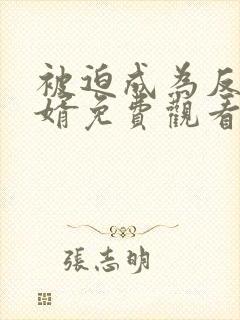 被迫成為反
婿免費觀看
張志明